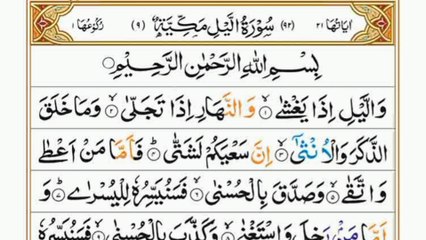 اٰیَاتُهَا ٢١ (٩٢) سُوْرَةُ الَّیْلِ مَكِّیَّةٌ (٩) رُكُوْعُهَا ١
بِسْمِ اللّٰهِ الرَّحْمٰنِ الرَّحِیْمِ
وَالَّیْلِ اِذَا یَغْشٰی ۝١ وَالنَّهَارِ اِذَا تَجَلّٰی ۝٢ وَمَا خَلَقَ
الذَّكَرَ وَالْاُنْثٰۤی ۝٣ اِنَّ سَعْیَكُمْ لَشَتّٰی ۝٤ فَاَمَّا مَنْ اَعْطٰی
وَاتَّقٰی ۝٥ وَصَدَّقَ بِالْحُسْنٰی ۝٦ فَسَنُیَسِّرُهٗ لِلْیُسْرٰی ۝٧ وَ
اَمَّا مَنْۢ بَخِلَ وَاسْتَغْنٰی ۝٨ وَكَذَّبَ بِالْحُسْنٰی ۝٩ فَسَنُیَسِّرُهٗ